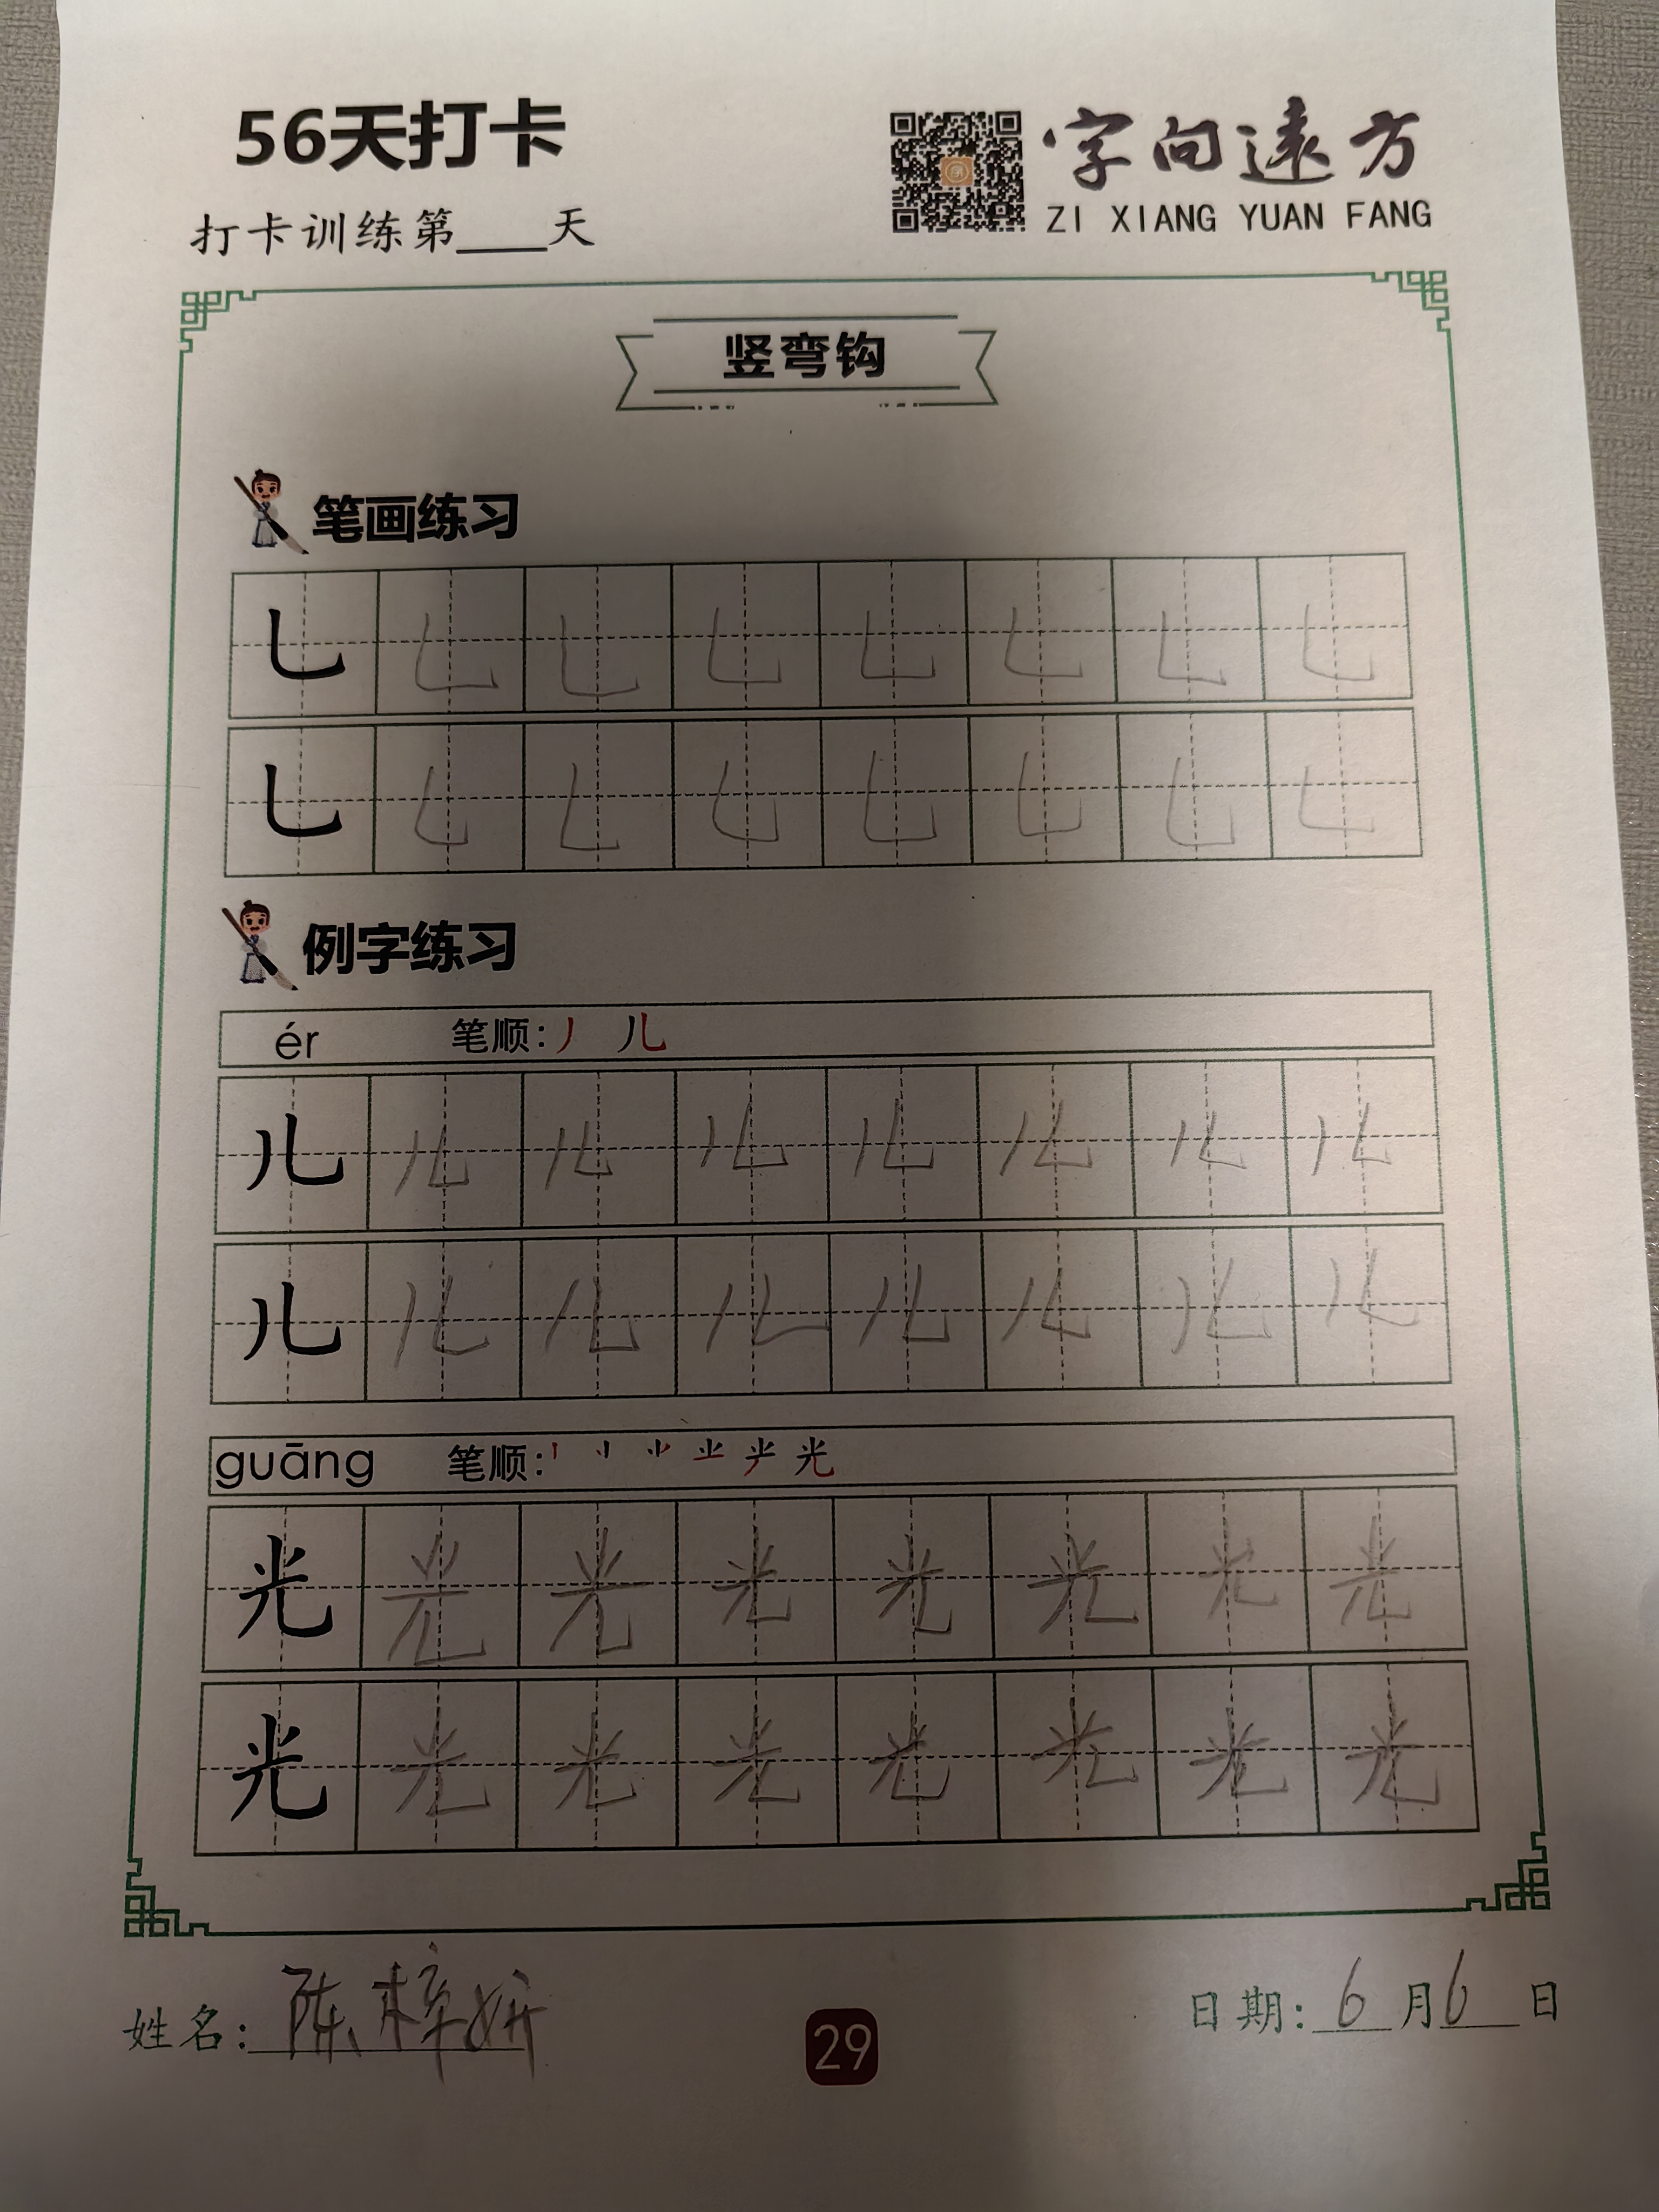 56天打卡
字向遠方
打卡训练第____天
ZI XIANG YUAN FANG
竖弯钩
笔画练习
乚 乚 乚 乚 乚 乚 乚 乚
乚 乚 乚 乚 乚 乚 乚 乚
例字练习
ér 笔顺: 丿 儿
儿 儿 儿 儿 儿 儿 儿 儿
儿 儿 儿 儿 儿 儿 儿 儿
guāng 笔顺: 光
光 光 光 光 光 光 光 光
光 光 光 光 光 光 光 光
姓名: 陈梓妍
29
日期: 6月6日